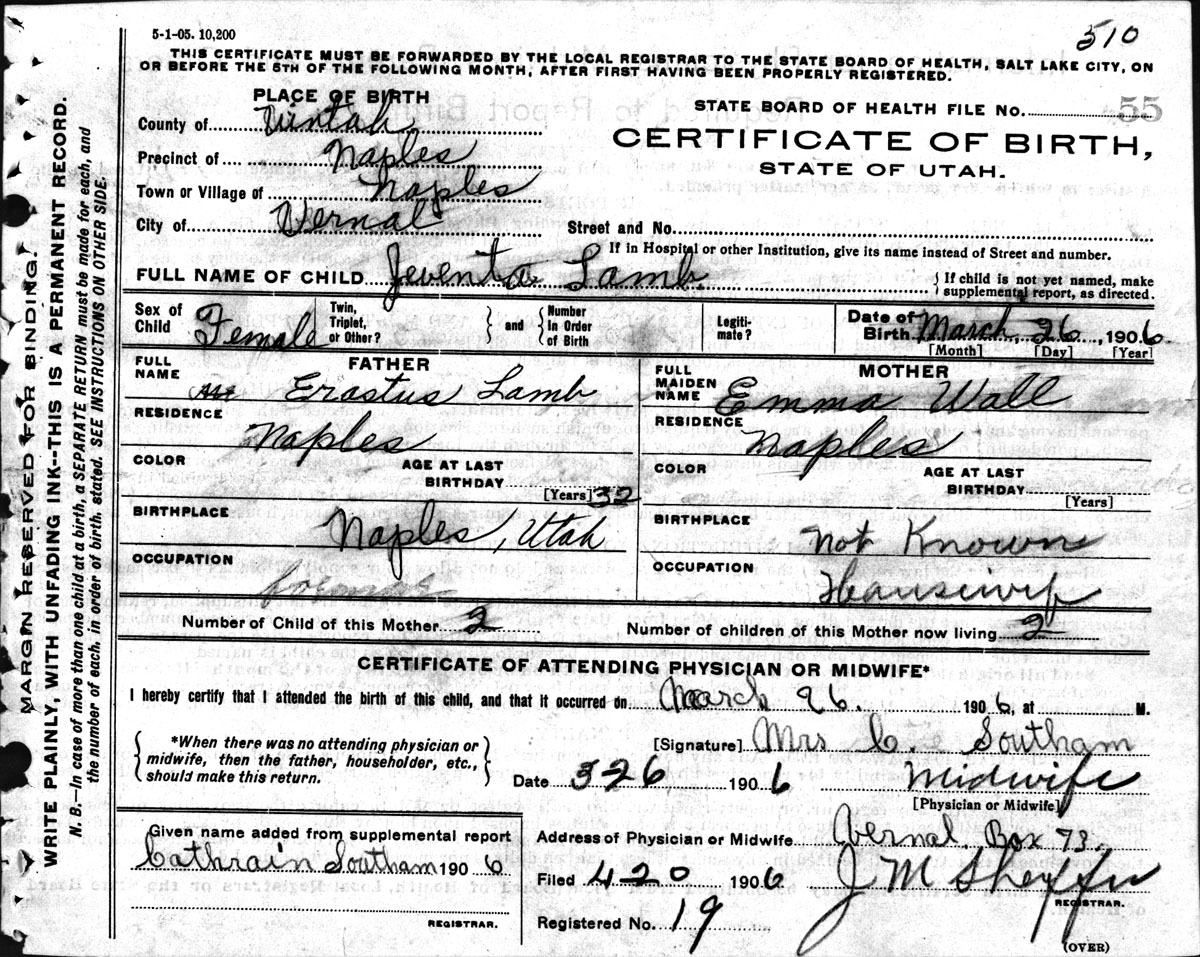 5-1-05. 10,200
510
THIS CERTIFICATE MUST BE FORWARDED BY THE LOCAL REGISTRAR TO THE STATE BOARD OF HEALTH, SALT LAKE CITY, ON
OR BEFORE THE 5TH OF THE FOLLOWING MONTH, AFTER FIRST HAVING BEEN PROPERLY REGISTERED.
MARGIN RESERVED FOR BINDING.
WRITE PLAINLY, WITH UNFADING INK--THIS IS A PERMANENT RECORD.
N. B.--In case of more than one child at a birth, a SEPARATE RETURN must be made for each, and
the number of each, in order of birth, stated. SEE INSTRUCTIONS ON OTHER SIDE.
PLACE OF BIRTH
County of Uintah
Precinct of Naples
Town or Village of Naples
City of Vernal
STATE BOARD OF HEALTH FILE No. 55
CERTIFICATE OF BIRTH,
STATE OF UTAH.
Street and No.
If in Hospital or other Institution, give its name instead of Street and number.
FULL NAME OF CHILD Jeventa Lamb
If child is not yet named, make
supplemental report, as directed.
Sex of Child Female
Twin, Triplet, or Other?
and
Number in Order of Birth
Legitimate?
Date of Birth March 26, 1906
[Month] [Day] [Year]
FATHER
FULL NAME Erastus Lamb
RESIDENCE
Naples
COLOR
AGE AT LAST BIRTHDAY 32
[Years]
BIRTHPLACE
Naples, Utah
OCCUPATION
MOTHER
FULL MAIDEN NAME Emma Wall
RESIDENCE
Naples
COLOR
AGE AT LAST BIRTHDAY
[Years]
BIRTHPLACE
Not Known
OCCUPATION
Housewife
Number of Child of this Mother 2
Number of children of this Mother now living 2
CERTIFICATE OF ATTENDING PHYSICIAN OR MIDWIFE*
I hereby certify that I attended the birth of this child, and that it occurred on March 26. 1906, at M.
*When there was no attending physician or
midwife, then the father, householder, etc.,
should make this return.
[Signature] Mrs C. Southam
Date 3 26 1906
Midwife
[Physician or Midwife]
Given name added from supplemental report
Cathrain Southam 1906
REGISTRAR.
Address of Physician or Midwife Vernal, Box 73.
Filed 4 20 1906
J M
REGISTRAR.
Registered No. 19
(OVER)